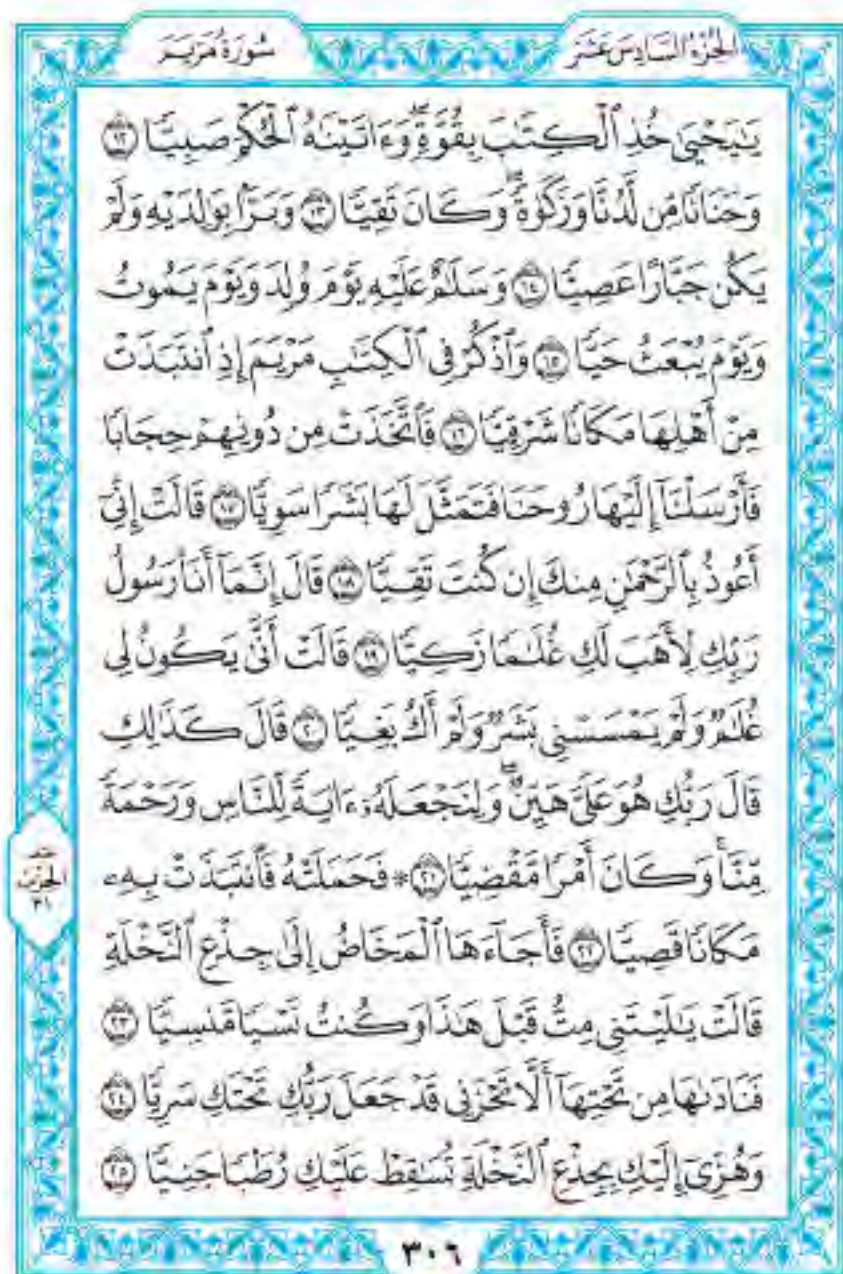 الجُزْءُ السَّادِسَ عَشَرَ
سُورَةُ مَرْيَمَ
يَٰيَحْيَىٰ خُذِ ٱلْكِتَٰبَ بِقُوَّةٍۖ وَءَاتَيْنَٰهُ ٱلْحُكْمَ صَبِيًّا ١٢
وَحَنَانًا مِّن لَّدُنَّا وَزَكَوٰةًۖ وَكَانَ تَقِيًّا ١٣ وَبَرًّۢا بِوَٰلِدَيْهِ وَلَمْ
يَكُن جَبَّارًا عَصِيًّا ١٤ وَسَلَٰمٌ عَلَيْهِ يَوْمَ وُلِدَ وَيَوْمَ يَمُوتُ
وَيَوْمَ يُبْعَثُ حَيًّا ١٥ وَٱذْكُرْ فِى ٱلْكِتَٰبِ مَرْيَمَ إِذِ ٱنتَبَذَتْ
مِنْ أَهْلِهَا مَكَانًا شَرْقِيًّا ١٦ فَٱتَّخَذَتْ مِن دُونِهِمْ حِجَابًا
فَأَرْسَلْنَآ إِلَيْهَا رُوحَنَا فَتَمَثَّلَ لَهَا بَشَرًا سَوِيًّا ١٧ قَالَتْ إِنِّىٓ
أَعُوذُ بِٱلرَّحْمَٰنِ مِنكَ إِن كُنتَ تَقِيًّا ١٨ قَالَ إِنَّمَآ أَنَا۠ رَسُولُ
رَبِّكِ لِأَهَبَ لَكِ غُلَٰمًا زَكِيًّا ١٩ قَالَتْ أَنَّىٰ يَكُونُ لِى
غُلَٰمٌ وَلَمْ يَمْسَسْنِى بَشَرٌ وَلَمْ أَكُ بَغِيًّا ٢٠ قَالَ كَذَٰلِكِ
قَالَ رَبُّكِ هُوَ عَلَىَّ هَيِّنٌۖ وَلِنَجْعَلَهُۥٓ ءَايَةً لِّلنَّاسِ وَرَحْمَةً
مِّنَّاۚ وَكَانَ أَمْرًا مَّقْضِيًّا ٢١ ۞ فَحَمَلَتْهُ فَٱنتَبَذَتْ بِهِۦ
مَكَانًا قَصِيًّا ٢٢ فَأَجَآءَهَا ٱلْمَخَاضُ إِلَىٰ جِذْعِ ٱلنَّخْلَةِ
قَالَتْ يَٰلَيْتَنِى مِتُّ قَبْلَ هَٰذَا وَكُنتُ نَسْيًا مَّنسِيًّا ٢٣
فَنَادَىٰهَا مِن تَحْتِهَآ أَلَّا تَحْزَنِى قَدْ جَعَلَ رَبُّكِ تَحْتَكِ سَرِيًّا ٢٤
وَهُزِّىٓ إِلَيْكِ بِجِذْعِ ٱلنَّخْلَةِ تُسَٰقِطْ عَلَيْكِ رُطَبًا جَنِيًّا ٢٥
الحزب
٣١
٣٠٦